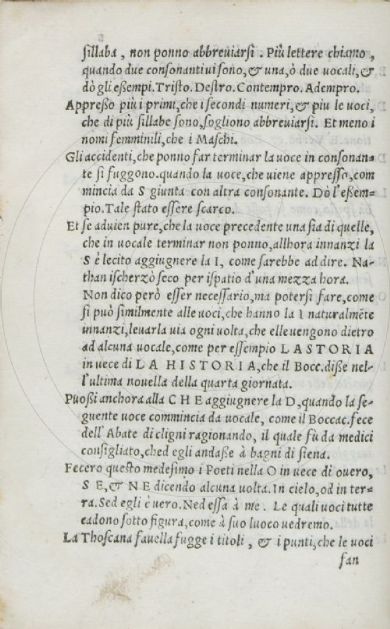 sillaba, non ponno abbreuiarsi. Più lettere chiamo,
quando due consonanti ui sono, & una, ò due uocali, &
dò gli eßempi. Tristo. Destro. Contempro. Adempro.
Appreßo più i primi, che i secondi numeri, & piu le uoci,
che di più sillabe sono, sogliono abbreuiarsi. Et meno i
nomi femminili, che i Maschi.
Gli accidenti, che ponno far terminar la uoce in consonan=
te si fuggono. quando la uoce, che uiene appresso, com
mincia da S giunta con altra consonante. Dò l'eßem=
pio. Tale stato essere scarco.
Et se aduien pure, che la uoce precedente una sia di quelle,
che in uocale terminar non ponno, allhora innanzi la
S è lecito aggiugnere la I, come sarebbe ad dire. Na=
than ischerzò seco per ispatio d'una mezza hora.
Non dico però esser necessario, ma potersi fare, come
si può similmente alle uoci, che hanno la I naturalmēte
innanzi, leuarla uia ogni uolta, che elle uengono dietro
ad alcuna uocale, come per essempio LASTORIA
in uece di LA HISTORIA, che il Bocc. diße nel=
l'ultima nouella della quarta giornata.
Puoßi anchora alla CHE aggiugnere la D, quando la se=
guente uoce commincia da uocale, come il Boccac. fece
dell'Abate di cligni ragionando, il quale fù da medici
consigliato, ched egli andaße à bagni di siena.
Fecero questo medesimo i Poeti nella O in uece di ouero,
SE, & NE dicendo alcuna uolta. In cielo, od in ter=
ra. Sed egli è uero. Ned essa à me. Le quali uoci tutte
cadono sotto figura, come à suo luoco uedremo.
La Thoscana fauella fugge i titoli, & i punti, che le uoci
fan